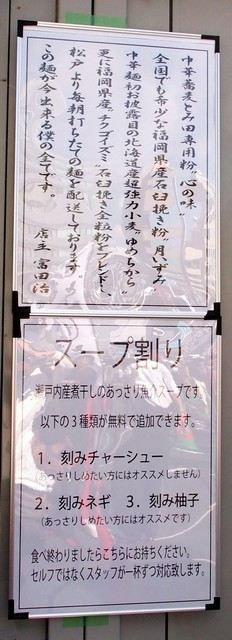 中華蕎麦とみ田専用粉“心の味”
全国でも希少な福岡県産石臼挽き粉“月いずみ
中華麺初お披露目の北海道産超強力小麦“ゆめちから”
更に福岡県産“チクゴイズミ”石臼挽き全粒粉をブレンドし、
松戸より毎朝打ちたての麺を配送しております
この麺が今出来る僕の全てです。
店主 富田治
スープ割り
瀬戸内産煮干しのあっさり魚介スープです
以下の3種類が無料で追加できます。
1. 刻みチャーシュー
(あっさりしめたい方にはオススメしません)
2. 刻みネギ 3. 刻み柚子
(あっさりしめたい方にはオススメです)
食べ終わりましたらこちらにお持ちください。
セルフではなくスタッフが一杯ずつ対応致します。